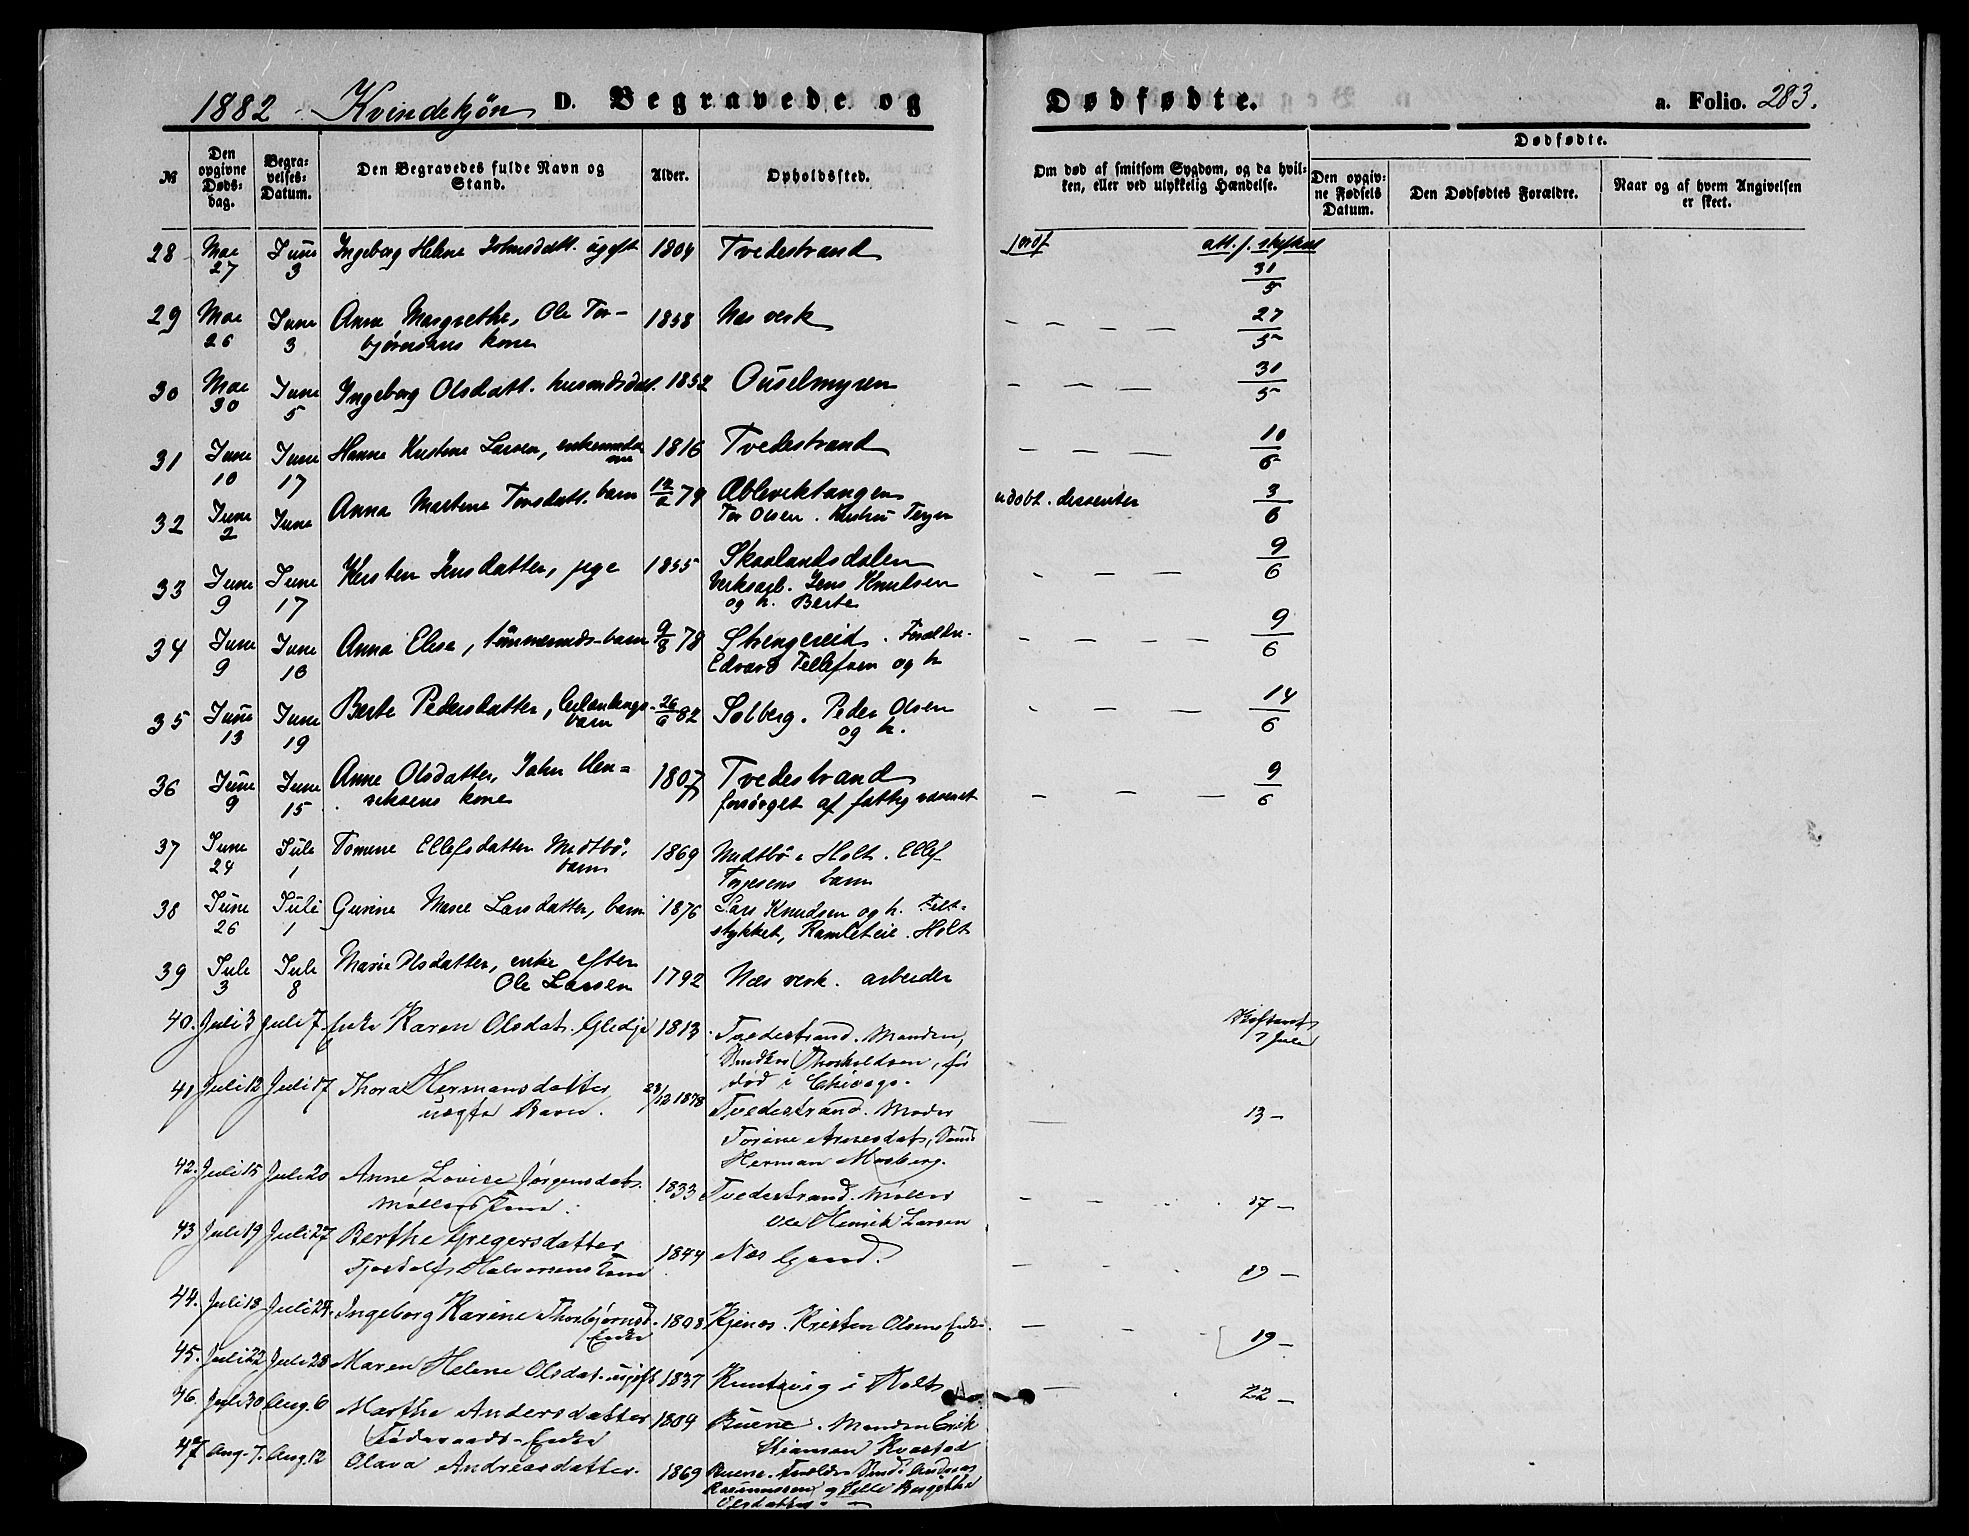 1882 Kvindekjøn D. Begravede og Dødfødte. a. Folio. 283.
№ Den opgivne Døds-dag. Begra-velses-Datum. Den Begravedes fulde Navn og Stand. Alder. Opholdssted. Om død af smitsom Sygdom, og da hvil-ken, eller ved ulykkelig Hændelse. Dødfødte. Den opgiv-ne Fødsels Datum. Den Dødfødtes Forældre. Naar og af hvem Angivelsen er skeet.
28 Mai 27 Juni 3 Ingeborg Helene Johnsdatt. ugift 1804 Tvedestrand jordf att. f. skifteret 31/5
29 Mai 26 Juni 3 Anne Margrethe, Ole Tor-
bjørnsens kone 1858 Næs verk 27/5
30 Mai 30 Juni 5 Ingeborg Olsdatt. husmdsdatt. 1852 Ouselmyren 31/5
31 Juni 10 Juni 17 Hanne Kristine Larsen, 1816 Tvedestrand 10/6
32 Juni 2 Juni Anna Martine Torsdatt. barn 79 Ableviktangen
Tor Olsen. 3/6
udøbt. dissenter
33 Juni 9 Juni 17 Kirsten Jensdatter, pige 1855 Skaalandsdalen
Verksarb. Jens Knudsen
og h. Berte 9/6
34 Juni 9 Juni 10 Anna Elise, tømmermds-barn 9/8 78 Strengereid. Forældre.
Edvard Tellefsen og h 9/6
35 Juni 13 Juni 19 Berte Pedersdatter,
barn 26/6 82 Solberg. Peder Olsen
og h. 14/6
36 Juni 9 Juni 15 Anne Olsdatter, John Hen=
riksens kone 1807 Tvedestrand
forsørget af fattigvæsenet 9/6
37 Juni 24 Juli 1 Tomine Ellefsdatter Midtbö,
barn 1869 Midtbö i Holt. Ellef
Torjesens barn
38 Juni 26 Juli 1 Gurine Marie Larsdatter, barn 1876 Lars Knudsen og h.
stykket, Ramleteie. Holt
39 Juli 3 Juli 8 Marie Olsdatter, enke efter
Ole Larsen 1792 Næs verk. arbeider
40. Juli 3 Juli 7 Enke Karen Olsdat. Gledje 1813 Tvedestrand. Manden,
Thorkildsen, før
død i Chicago. 7 Juli
41 Juli 12 Juli 17 Thora Hermansdatter
uægte Barn. 23/12 1878 Tvedestrand. Moder
Torine Arnesdat,
Herman Mosberg. 13 –
42. Juli 15 Juli 20 Anne Lovise Jørgensdat.
Møllers Kone. 1833 Tvedestrand. Møller
Ole Henrik Larsen 17 –
43 Juli 19 Juli 27 Berthe Gregersdatter
Halvorsens Kone 1844 Næs Gaard. 19 –
44. Juli 18 Juli 24. Ingeborg Karine Thorbjørnsd.
Enke 1808 Kjenes. Kristen Olsens Enke. 19 –
45. Juli 22 Juli 28 Maren Helene Olsdat. ugift 1837 i Holt 22 –
46. Juli 30 Aug. 6 Marthe Andersdatter
Føderaads-Enke 1804 Buene. Manden Erik
Stiansen Kvastad
47 Aug. 7. Aug. 12 Olava Andreasdatter. 1869 Buene. Forældre Andreas
Rasmussen og
Olsdatter